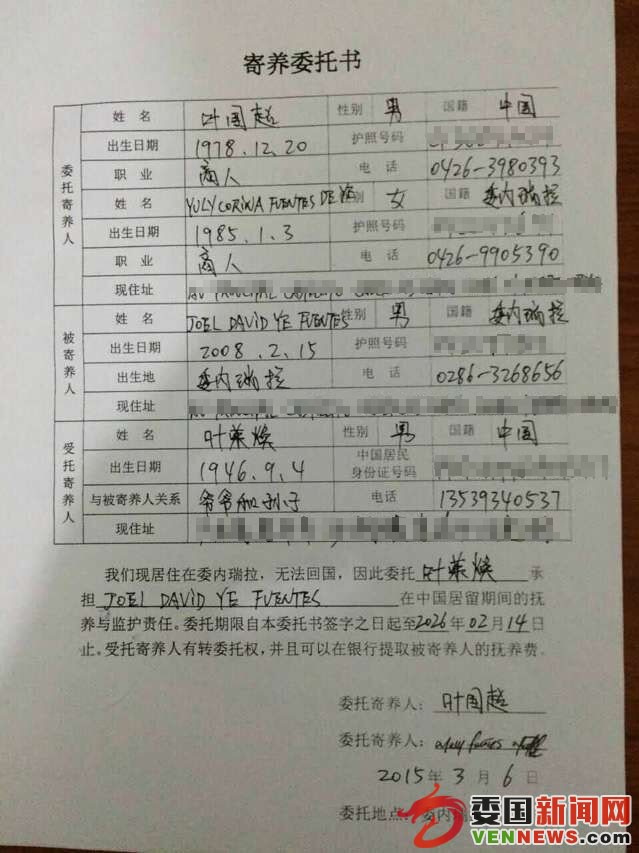 寄养委托书
委托寄养人
姓名 叶国超 性别 男 国籍 中国
出生日期 1978.12.20 护照号码
职业 商人 电话 0426-3980393
姓名 YULY CORINA FUENTES DE YE 性别 女 国籍 委内瑞拉
出生日期 1985.1.3 护照号码
职业 商人 电话 0426-9905390
现住址
被寄养人
姓名 JOEL DAVID YE FUENTES 性别 男 国籍 委内瑞拉
出生日期 2008.2.15 护照号码
出生地 委内瑞拉 电话 0286-3268656
现住址
受托寄养人
姓名 叶荣焕 性别 男 国籍 中国
出生日期 1946.9.4 中国居民身份证号码
与被寄养人关系 爷爷和孙子 电话 13539340537
现住址
我们现居住在委内瑞拉，无法回国，因此委托 叶荣焕 承
担 JOEL DAVID YE FUENTES 在中国居留期间的抚
养与监护责任。委托期限自本委托书签字之日起至2026年02月14日
止。受托寄养人有转委托权，并且可以在银行提取被寄养人的抚养费。
委托寄养人：叶国超
委托寄养人：
2015年3月6日
委托地点：委内瑞
委国新闻网
VENNEWS.COM